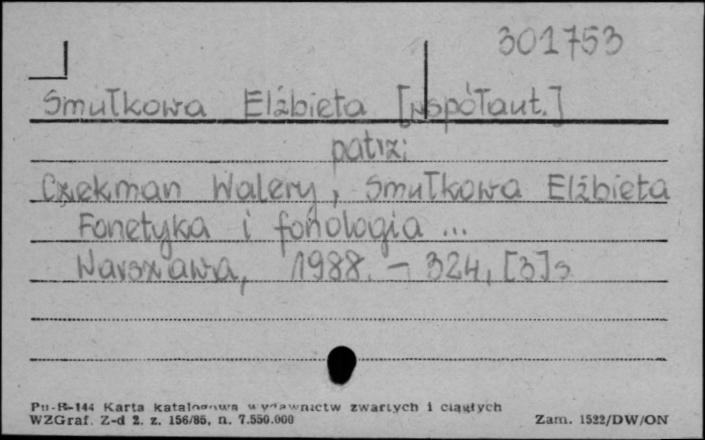 301753
Smułkowa Elżbieta [współaut.]
patrz:
Czekman Walery, Smułkowa Elżbieta
Fonetyka i fonologia ...
Warszawa, 1988. – 324, [3] s
Pu-B-144 Karta katalogowa wydawnictw zwartych i ciągłych
WZGraf. Z-d 2. z. 156/85, n. 7.550.000 Zam. 1522/DW/ON